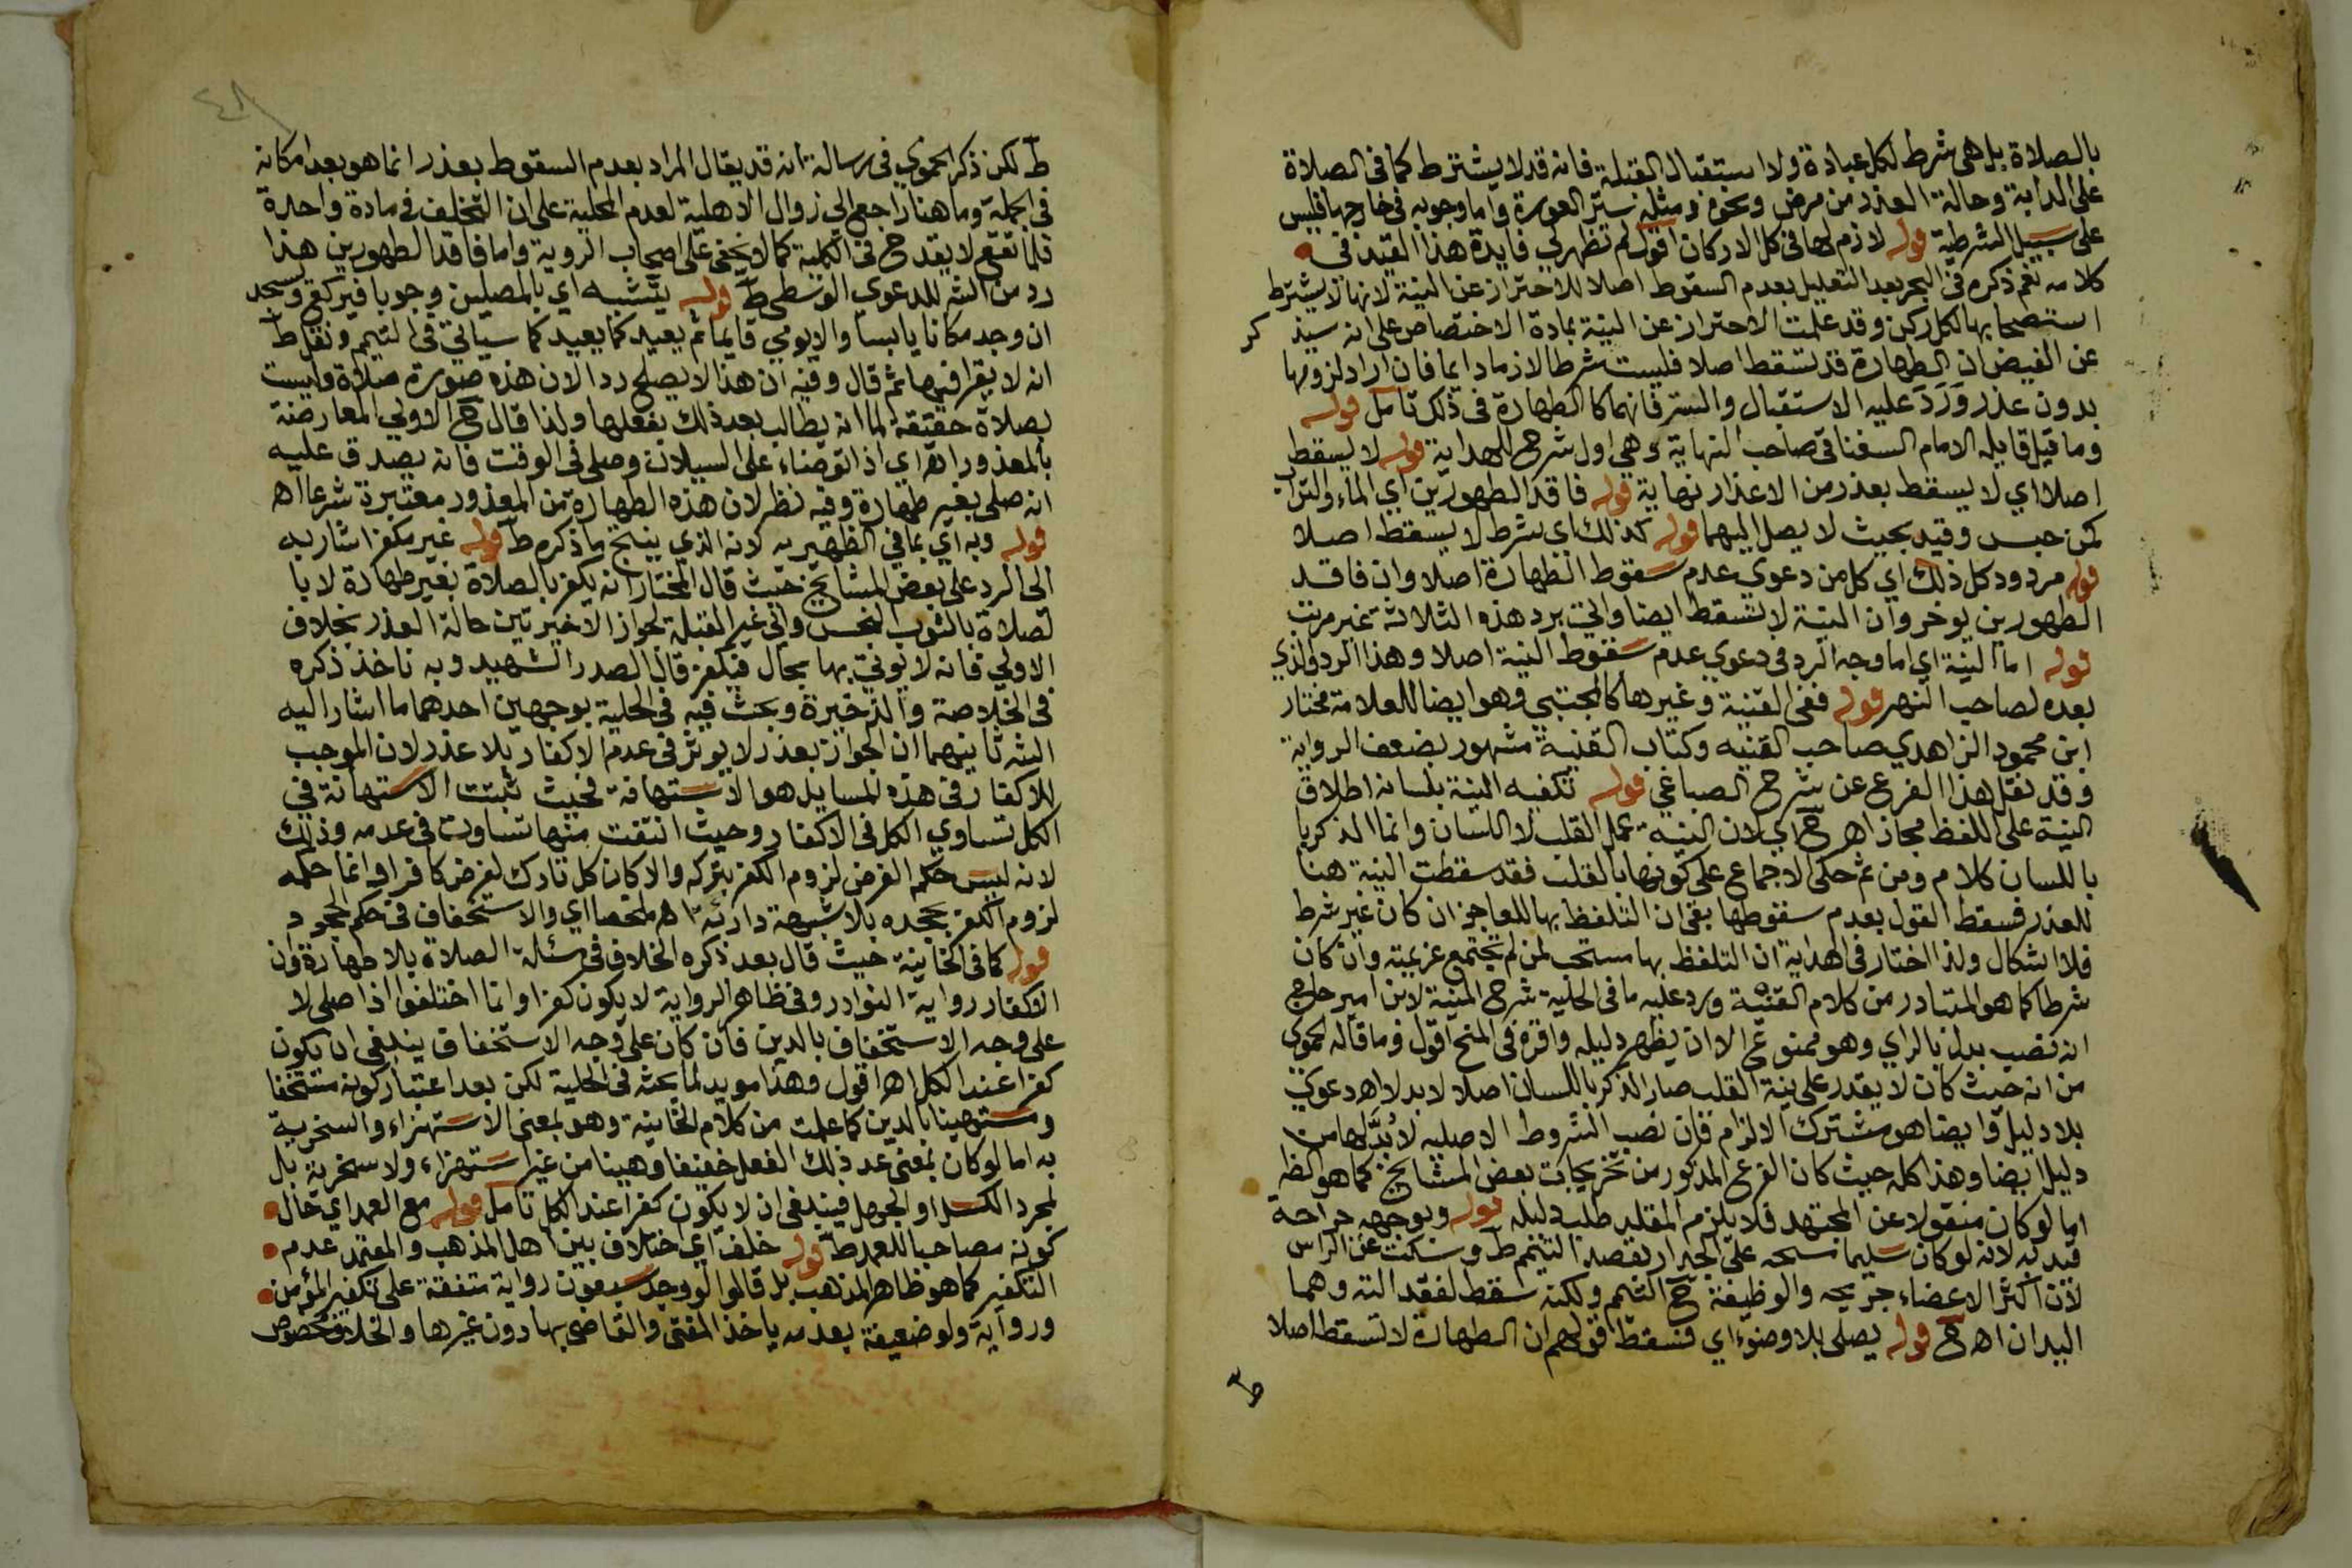 بالصلاة بل هي شرط لكل عبادة ولا استقبال القبلة فانه قد لا يشترط كما في الصلاة
على الدابة وحالة العذر من مرض ونحوه ومثله ستر العورة واما وجوبه في خارجها فليس
على سبيل الشرطية قوله لازم لها في كل الاركان اقول لم تظهر لي فايدة هذا القيد في
كلامه نعم ذكره في البحر بعد التعليل بعدم السقوط اصلا للاحتراز عن النية لانها لا يشترط
استصحابها لكل ركن وقد علمت الاحتراز عن النية بمادة الاختصاص على انه سيذكر
عن الفيض ان الطهارة قد تسقط اصلا فليست شرطا لازما دايما فان اراد لزومها
بدون عذر ورد عليه الاستقبال والستر فانهما كالطهارة في ذلك تامل قوله
وما قيل قايله الامام السغناقي صاحب النهاية وهي اول شرح للهداية قوله لا يسقط
اصلا اي لا يسقط بعذر من الاعذار نهاية قوله فاقد الطهورين اي الماء والتراب
كمن حبس وقيد بحيث لا يصل اليهما قوله كذلك اي شرط لا يسقط اصلا
قوله مردود كل ذلك اي كل من دعوي عدم سقوط الطهارة اصلا وان فاقد
الطهورين يوخر وان النية لا تسقط ايضا واتى برد هذه الثلاثة غير مرتب
قوله اما النية اي اما وجه الرد في دعوي عدم سقوط النية اصلا وهذا الرد والذي
بعده لصاحب النهر قوله ففي القنية وغيرها كالمجتبي وهو ايضا للعلامة مختار
ابن محمود الزاهدي صاحب القنيه وكتاب القنية مشهور بضعف الرواية
وقد نقل هذا الفرع عن شرح الصباغي قوله تكفيه النية بلسانه اطلاق
النية على اللفظ مجاز اهـ ح اي لان النيه عمل القلب لا اللسان وانما الذكر با
باللسان كلام ومن ثم حكى الاجماع على كونها بالقلب فقد سقطت النية هنا
للعذر فسقط القول بعدم سقوطها بقي ان التلفظ بها للعاجز ان كان غير شرط
فلا اشكال ولذا اختار في الهداية ان التلفظ بها مستحب لمن لم تجتمع عزيمته وان كان
شرطا كما هو المتبادر من كلام القنية ورد عليه ما في الحلية شرح المنية لابن امير حاج
انه نصب بدل بالراي وهو ممنوع الا ان يظهر دليله واقره في المنح اقول وما قاله الحموي
من انه حيث كان لا يقدر على نية القلب صار الذكر باللسان اصلا لا بدلا اهـ دعوي
بلا دليل وايضا هو مشترك الالزام فان نصب الشروط الاصليه لا بد لها من
دليل ايضا وهذا كله حيث كان الفرع المذكور من تخريجات بعض المشايخ كما هو الظ
اما لو كان منقولا عن المجتهد فلا يلزم المقلد طلب دليله قوله وبوجهه جراحة
قيد به لانه لو كان سليما مسحه على الجدار بقصد التيمم ط وسكت عن الراس
لان اكثر الاعضاء جريحه والوظيفة ح التيمم ولكنه سقط لفقد الته وهما
اليدان اهـ ح قوله يصلي بلا وضوء اي فسقط قولهم ان الطهارة لا تسقط اصلا
ط
٤٨
ط لكن ذكر الحموي في رسالة انه قد يقال المراد بعدم السقوط بعذر انما هو بعد امكانه
في الجملة وما هنا راجع الي زوال الاهلية لعدم المحلية على ان التخلف في مادة واحدة
قلما تقع لا يقدح في الكلية كما لا يخفى على اصحاب الروية واما فاقد الطهورين هذا
رد من الش للدعوي الوسطى ط قوله يتشبه اي بالمصلين وجوبا فيركع ويسجد
ان وجد مكانا يابسا والا يومي قايما ثم يعيد كما يعيد كما سياتي في التيمم ونقل ط
انه لا يقرا فيها ثم قال وفيه ان هذا لا يصلح ردا لان هذه صورة صلاة وليست
بصلاة حقيقة لما انه يطالب بعد ذلك بفعلها ولذا قال ح الاولي المعارضة
بالمعذور اهـ اي اذا توضاء على السيلان وصلى في الوقت فانه يصدق عليه
انه صلى بغير طهارة وفيه نظر لان هذه الطهارة من المعذور معتبرة شرعا اهـ
قوله وبه اي بما في الظهيريه لانه الذي ينتج ما ذكره ط قوله غير مكفر اشار به
الى الرد على بعض المشايخ حيث قال المختار انه يكفر بالصلاة بغير طهارة لا با
لصلاة بالثوب النجس والى غير القبلة لجواز الاخيرتين حالة العذر بخلاف
الاولي فانه لا يوتي بها بحال فيكفر قال الصدر الشهيد وبه ناخذ ذكره
في الخلاصة والذخيرة وبحث فيه في الحلية بوجهين احدهما ما اشار اليه
الش ثانيهما ان الجواز بعذر لا يوثر في عدم الاكفار بلا عذر لان الموجب
للاكفار في هذه المسايل هو الاستهانة فحيث ثبتت الاستهانة في
الكل تساوي الكل في الاكفار وحيث انتفت منها تساوت في عدمه وذلك
لانه ليس حكم الفرض لزوم الكفر بتركه والا كان كل تارك لفرض كافرا وانما حكمه
لزوم الكفر بجحده بلا شبهة دارئة اهـ ملخصا اي والاستخفاف في حكم الجحود
قوله كما في الخانية حيث قال بعد ذكره الخلاف في مسئلة الصلاة بلا طهارة وان
الاكفار رواية النوادر وفي ظاهر الرواية لا يكون كفرا وانما اختلفوا اذا صلى لا
على وجه الاستخفاف بالدين فان كان على وجه الاستخفاف ينبغي ان يكون
كفرا عند الكل اهـ اقول وهذا مويد لما بحثه في الحلية لكن بعد اعتبار كونه مستخفا
ومستهينا بالدين كما علمت من كلام الخانية وهو بمعنى الاستهزاء والسخرية
به اما لو كان بمعنى عد ذلك الفعل خفيفا وهينا من غير استهزاء ولا سخرية بل
لمجرد الكسل او الجهل فينبغي ان لا يكون كفرا عند الكل تامل قوله مع العمد اي حال
كونه مصاحبا للعمد ط قوله خلف اي اختلاف بين اهل المذهب والمعتمد عدم
التكفير كما هو ظاهر المذهب بل قالوا لو وجد سبعون رواية متفقة على تكفير المؤمن
ورواية ولو ضعيفة بعدمه ياخذ المفتي والقاضي بها دون غيرها والخلاف مخصوص